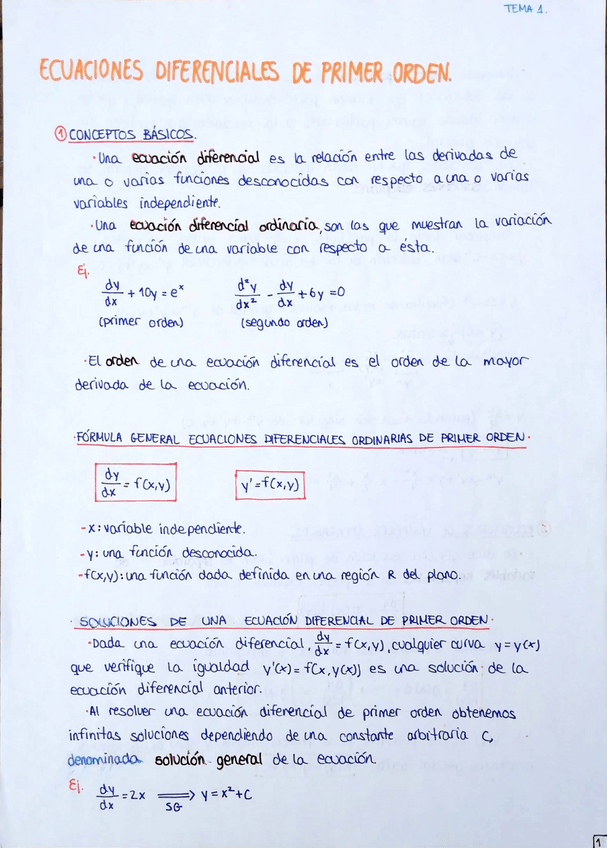 TEMA 1.
ECUACIONES DIFERENCIALES DE PRIMER ORDEN.
① CONCEPTOS BÁSICOS.
· Una ecuación diferencial es la relación entre las derivadas de
una o varias funciones desconocidas con respecto a una o varias
variables independiente.
· Una ecuación diferencial ordinaria, son las que muestran la variación
de una función de una variable con respecto a ésta.
Ej.
dy/dx + 10y = eˣ    d²y/dx² - dy/dx + 6y = 0
(primer orden)    (segundo orden)
· El orden de una ecuación diferencial es el orden de la mayor
derivada de la ecuación.
· FÓRMULA GENERAL ECUACIONES DIFERENCIALES ORDINARIAS DE PRIMER ORDEN ·
dy/dx = f(x,y)    y' = f(x,y)
- x: variable independiente.
- y: una función desconocida.
- f(x,y): una función dada definida en una región R del plano.
· SOLUCIONES DE UNA ECUACIÓN DIFERENCIAL DE PRIMER ORDEN ·
· Dada una ecuación diferencial, dy/dx = f(x,y), cualquier curva y = y(x)
que verifique la igualdad y'(x) = f(x, y(x)) es una solución de la
ecuación diferencial anterior.
· Al resolver una ecuación diferencial de primer orden obtenemos
infinitas soluciones dependiendo de una constante arbitraria C,
denominada solución general de la ecuación.
Ej. dy/dx = 2x ⟹ y = x² + C
SG
1